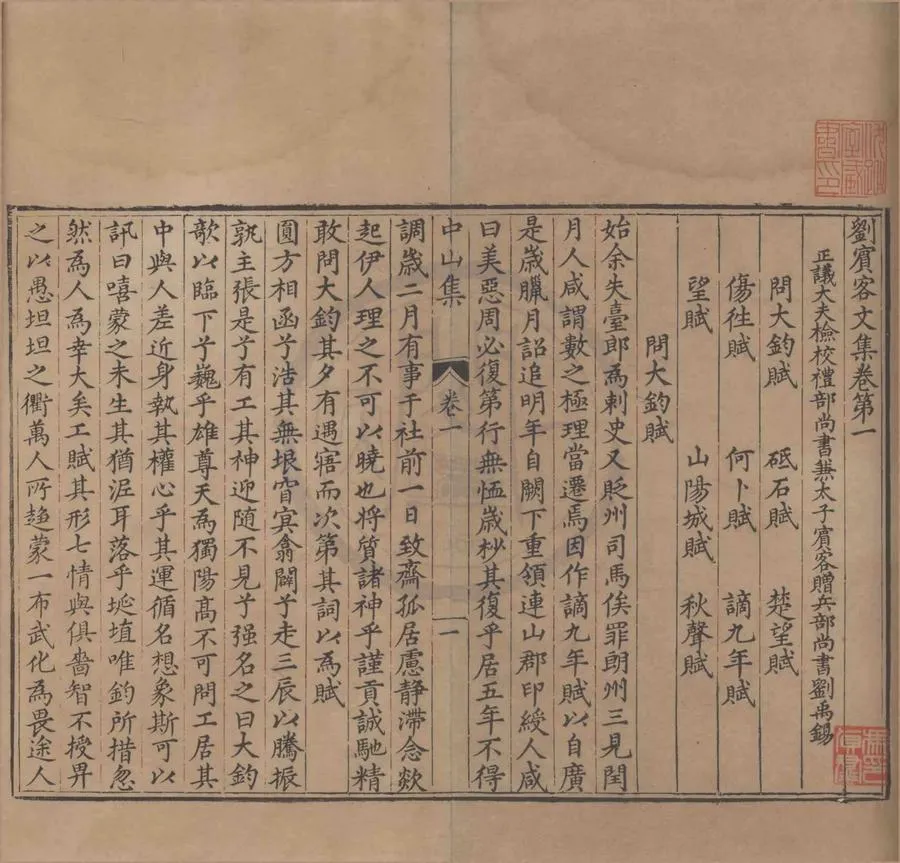 劉賔客文集卷第一
正議大夫檢校禮部尚書兼太子賔客贈兵部尚書劉禹錫
問大鈞賦　砥石賦　楚望賦
傷徃賦　何卜賦　謫九年賦
望賦　山陽城賦　秋聲賦
問大鈞賦
始余失臺郎爲刺史又貶州司馬俟罪朗州三見閏
月人咸謂數之極理當遷焉因作謫九年賦以自廣
是歲臘月詔追明年自闕下重領連山郡印綬人咸
曰美惡周必復第行無恤歲杪其復乎居五年不得
中山集　卷一　一
調歲二月有事于社前一日致齋孤居慮静滯念歘
起伊人理之不可以曉也将質諸神乎謹貢誠馳精
敢問大鈞其夕有遇寤而次第其詞以為賦
圓方相函兮浩其無垠窅冥翕闢兮走三辰以騰振
孰主張是兮有工其神迎随不見兮强名之曰大鈞
歌以臨下兮巍乎雄尊天為獨陽高不可問工居其
中與人差近身執其權心乎其運循名想象斯可以
訊曰嘻蒙之未生其猶泥耳落乎埏埴唯鈞所措忽
然為人為幸大矣工賦其形七情與俱嗇智不授畀
之以愚坦坦之衢萬人所趨蒙一布武化為畏途人